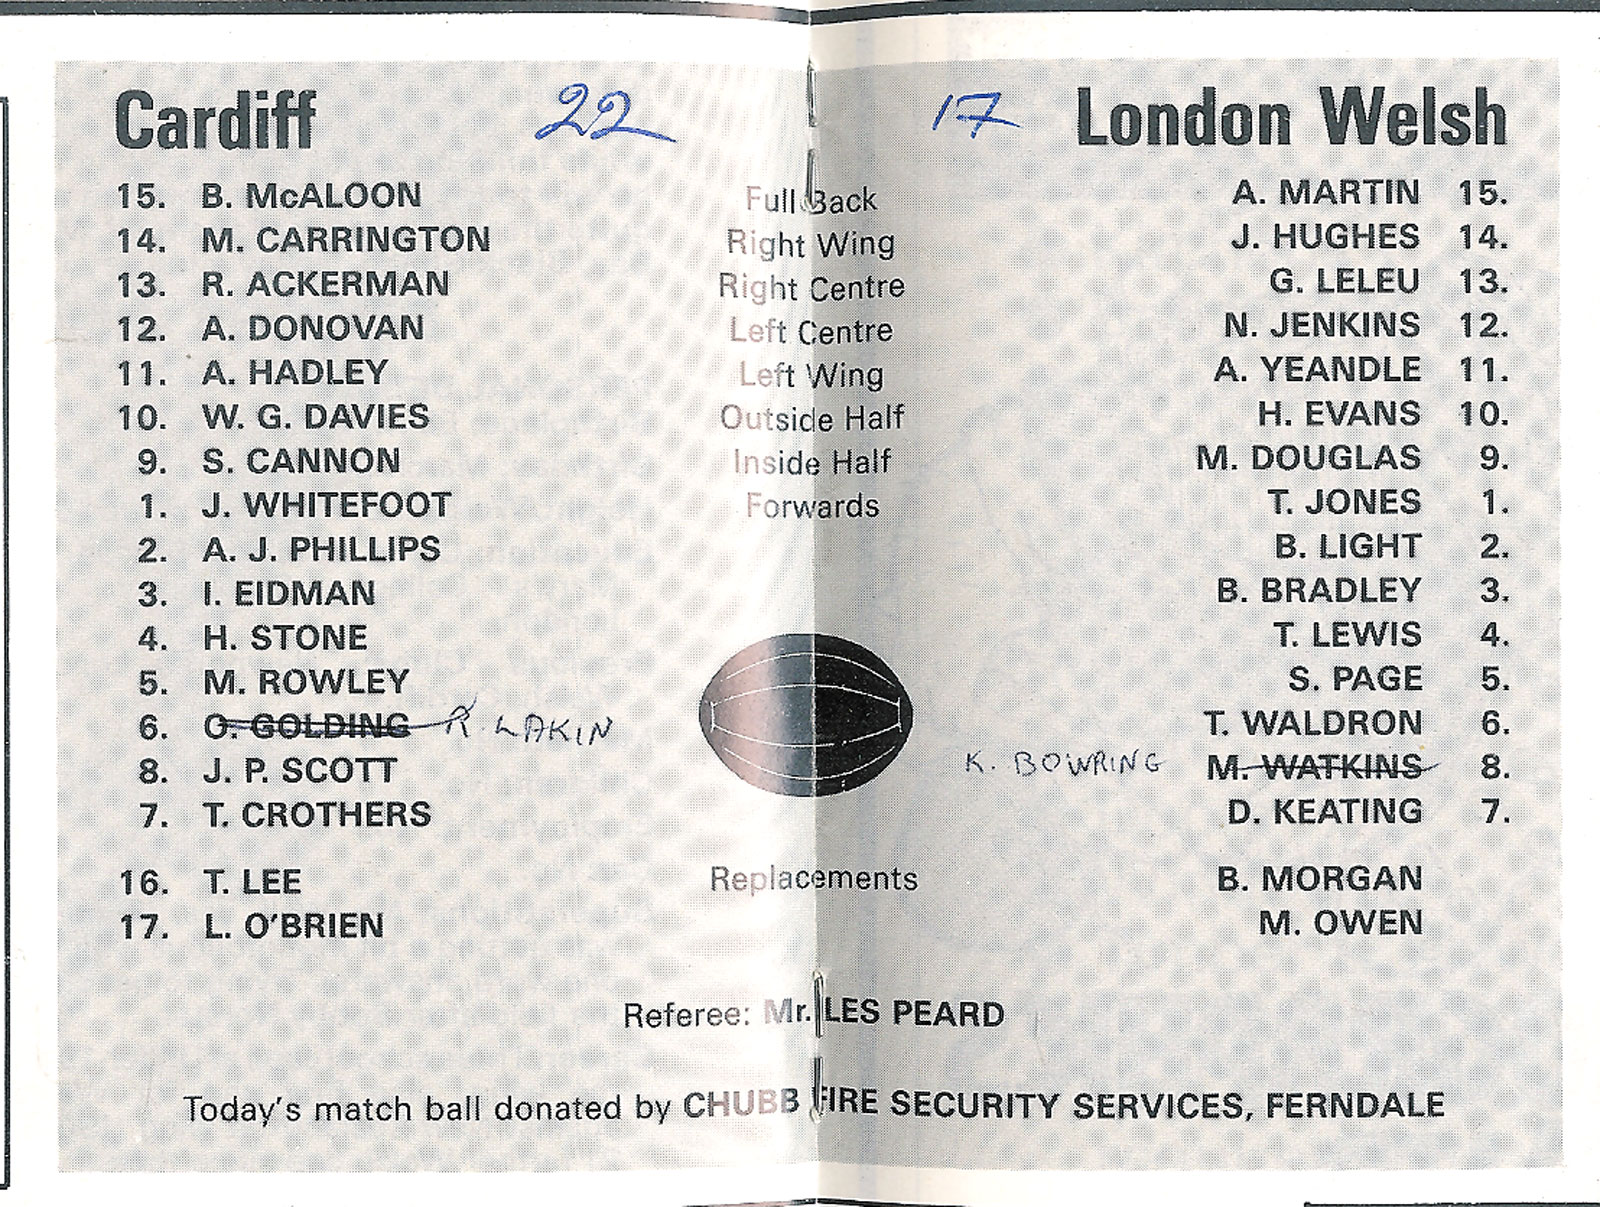 Cardiff 22 17 London Welsh
15. B. McALOON Full Back A. MARTIN 15.
14. M. CARRINGTON Right Wing J. HUGHES 14.
13. R. ACKERMAN Right Centre G. LELEU 13.
12. A. DONOVAN Left Centre N. JENKINS 12.
11. A. HADLEY Left Wing A. YEANDLE 11.
10. W. G. DAVIES Outside Half H. EVANS 10.
9. S. CANNON Inside Half M. DOUGLAS 9.
1. J. WHITEFOOT Forwards T. JONES 1.
2. A. J. PHILLIPS B. LIGHT 2.
3. I. EIDMAN B. BRADLEY 3.
4. H. STONE T. LEWIS 4.
5. M. ROWLEY S. PAGE 5.
6. O. GOLDING R. LAKIN T. WALDRON 6.
8. J. P. SCOTT K. BOWRING M. WATKINS 8.
7. T. CROTHERS D. KEATING 7.
16. T. LEE Replacements B. MORGAN
17. L. O'BRIEN M. OWEN
Referee: Mr. LES PEARD
Today's match ball donated by CHUBB FIRE SECURITY SERVICES, FERNDALE